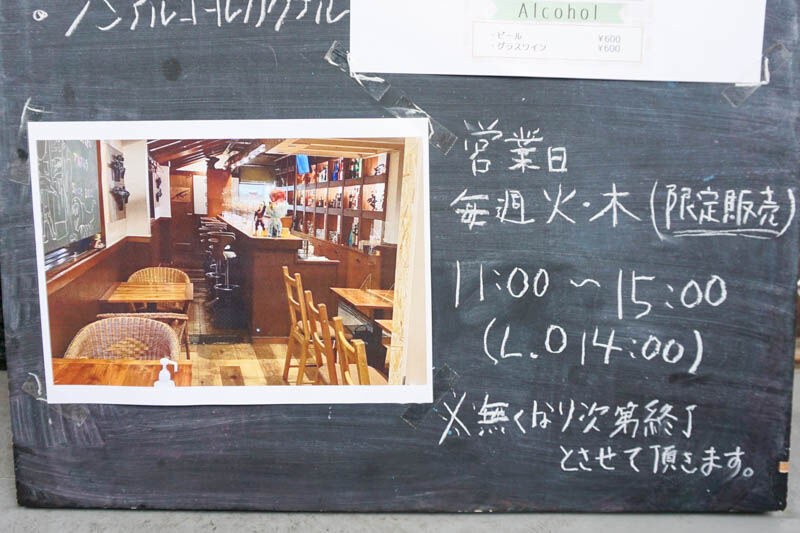 。ノンアルコールカクテル
Alcohol
・ビール ¥600
・グラスワイン ¥600
営業日
毎週火・木(限定販売)
11:00〜15:00
(L.O 14:00)
※無くなり次第終了
とさせて頂きます。